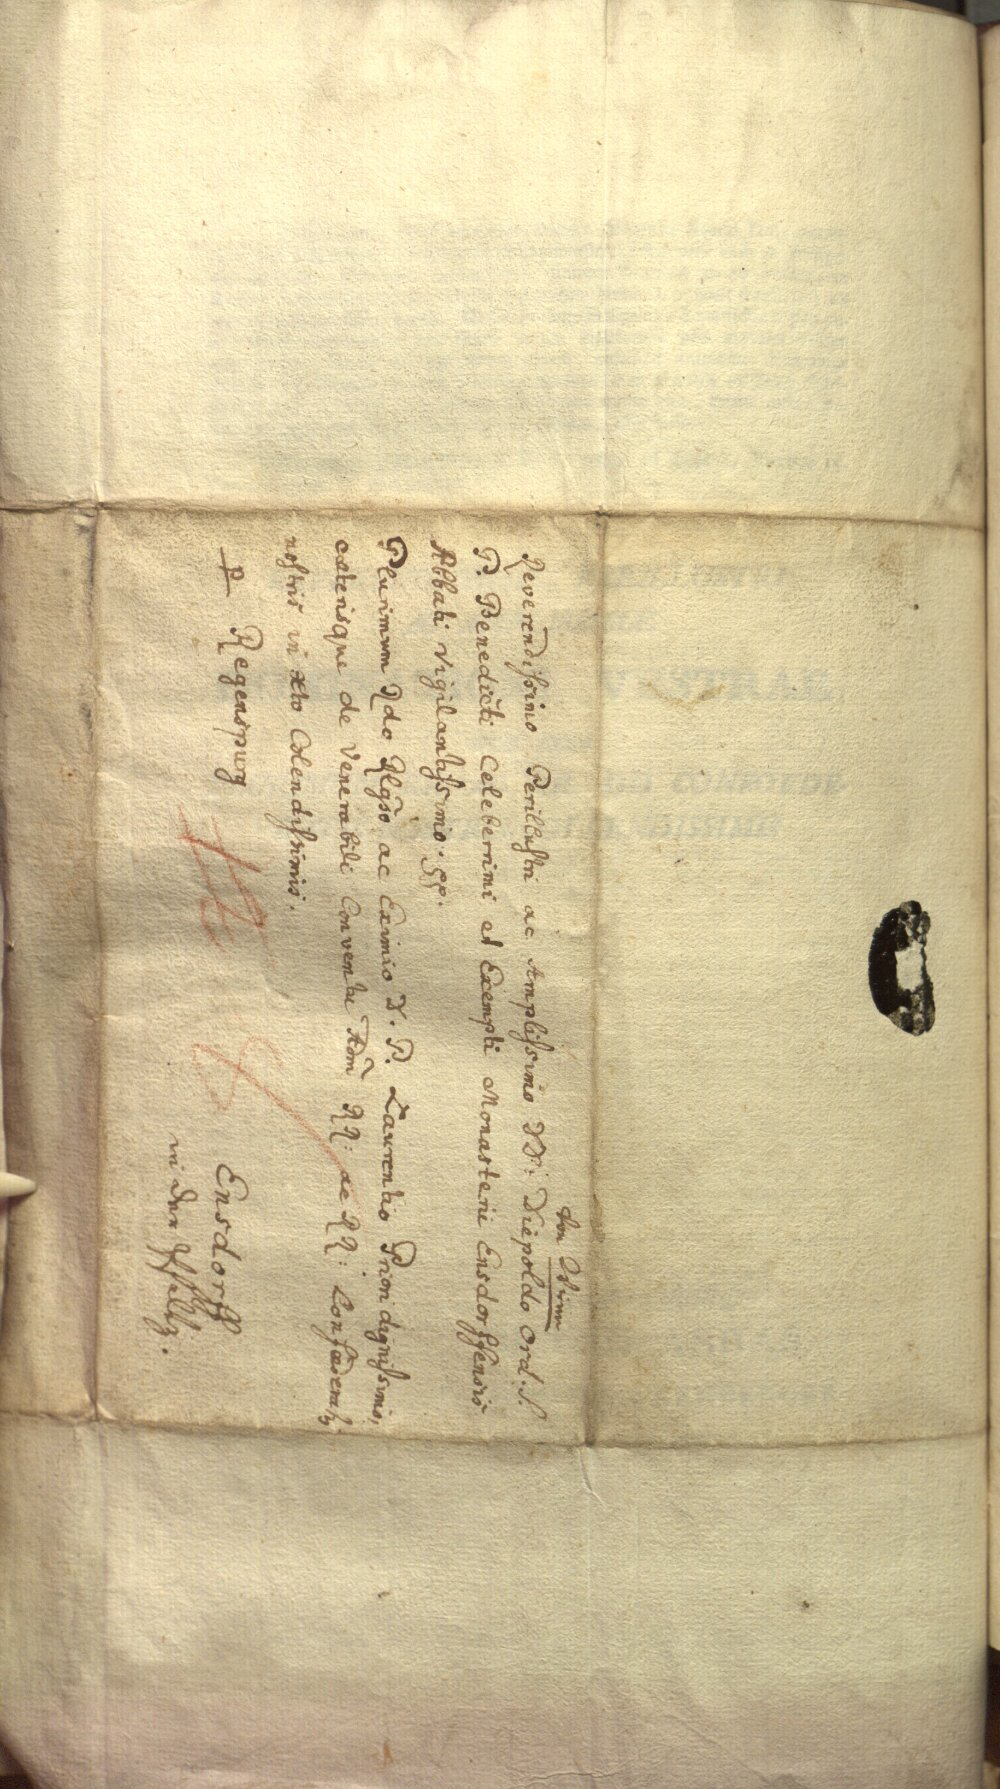 Von Wienn
Reverendissimo Perillustri ac Amplissimo DD: Diepoldo Ord. S.
P. Benedicti Celeberrimi et Exempti Monasterii Ensdorffensis
Abbati Vigilantissimo. &&.
Plurimum Rdo Rlgso ac Eximio D. P. Laurentio Priori dignissimo,
caeterisque de Venerabili Conventu Adm RR: ac RR: Confoederatis
nostris in Xto Colendissimis.
P Regenspurg
Ensdorff
in der Pfaltz.